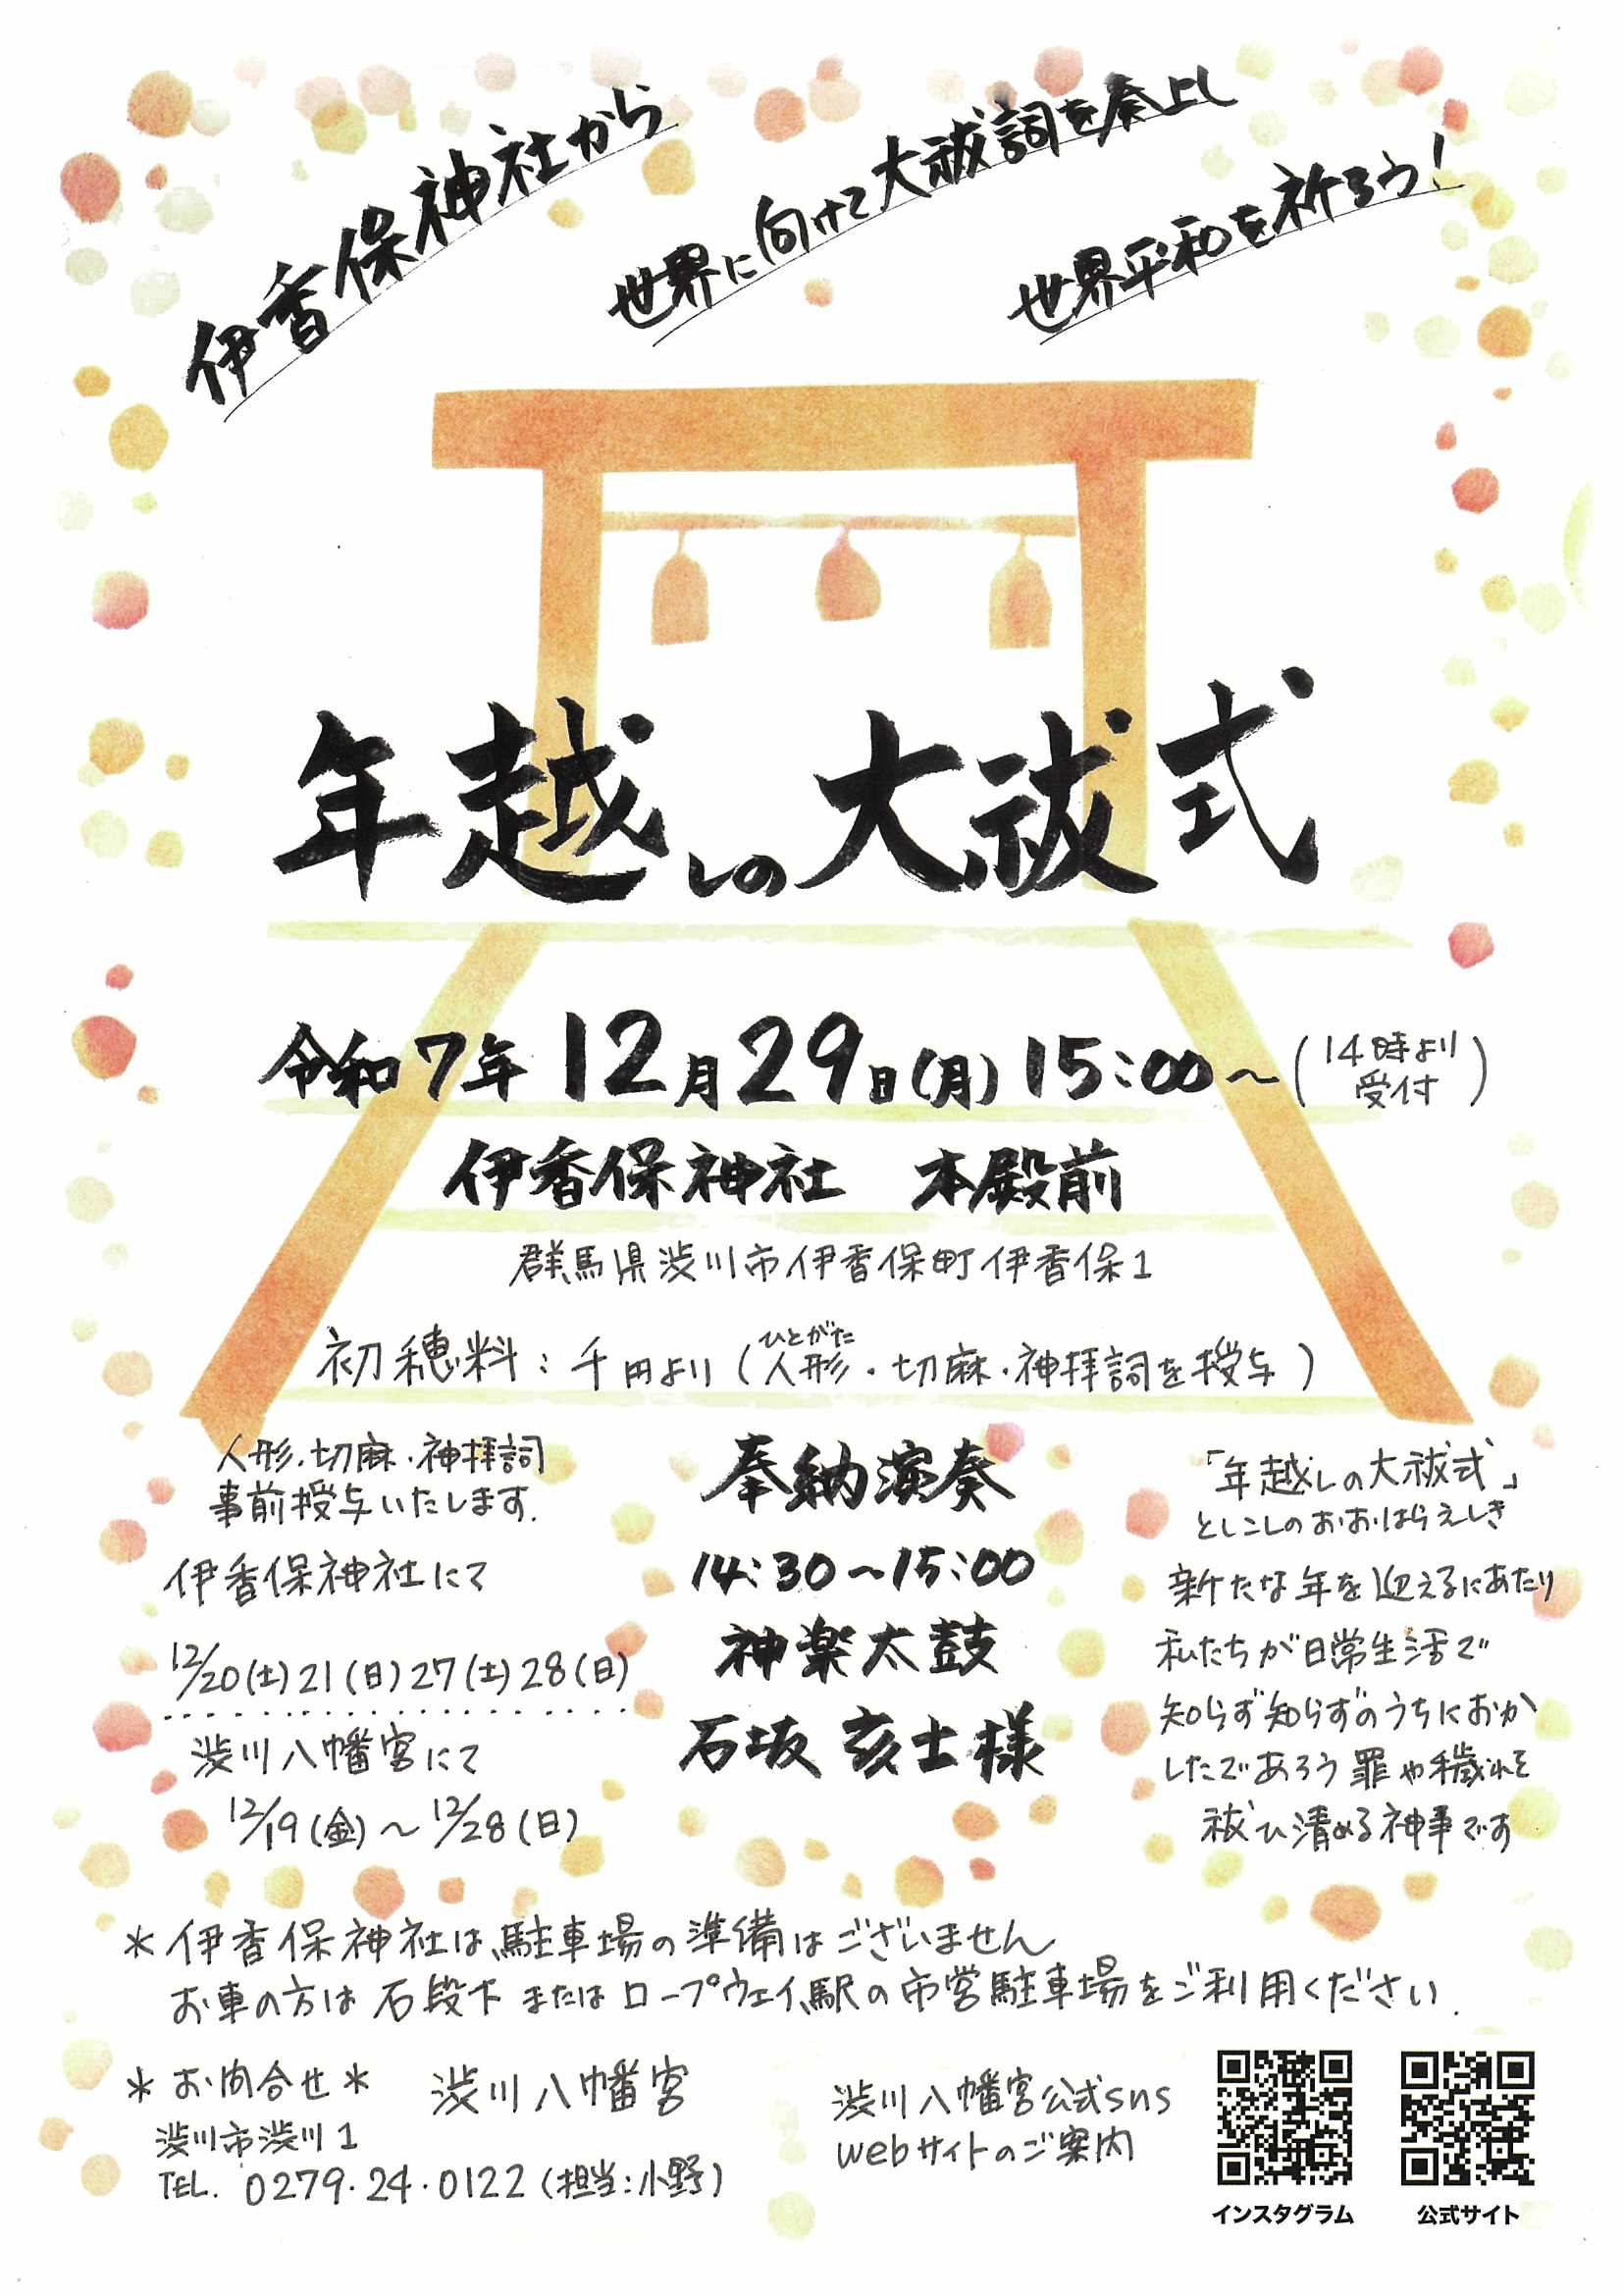 伊香保神社から
世界に向けて大祓詞を奏上し
世界平和を祈ろう！
年越しの大祓式
令和7年 12月29日(月) 15:00～(14時より受付)
伊香保神社 本殿前
群馬県渋川市伊香保町伊香保1
ひとがた
初穂料：千円より(人形・切麻・神拝詞を授与)
人形・切麻・神拝詞
事前授与いたします.
伊香保神社にて
12/20(土)21(日)27(土)28(日)
渋川八幡宮にて
12/19(金)～12/28(日)
奉納演奏
14:30～15:00
神楽太鼓
石坂 亥士様
「年越しの大祓式」
としこしのおおはらえしき
新たな年を迎えるにあたり
私たちが日常生活で
知らず知らずのうちにおか
したであろう罪や穢れを
祓ひ清める神事です
＊伊香保神社は駐車場の準備はございません
お車の方は石段下またはロープウェイ駅の市営駐車場をご利用ください.
＊お問合せ＊ 渋川八幡宮
渋川市渋川1
TEL. 0279・24・0122(担当:小野)
渋川八幡宮公式sns
webサイトのご案内
インスタグラム
公式サイト